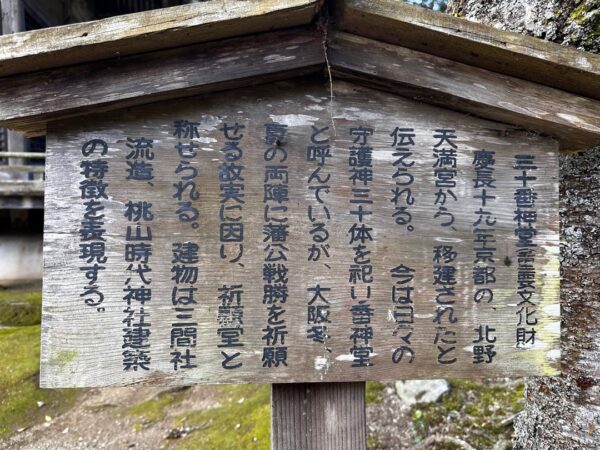 三十番神堂 重要文化財
慶長十九年京都の、北野
天満宮から、移建されたと
伝えられる。 今は日々の
守護神三十体を祀い番神堂
と呼んでいるが、大阪冬、
夏の両陣に蒲公戦勝を祈願
せる故実に因り、祈願堂と
称せられる。建物は三間社
流造、桃山時代神社建築
の特徴を表現する。